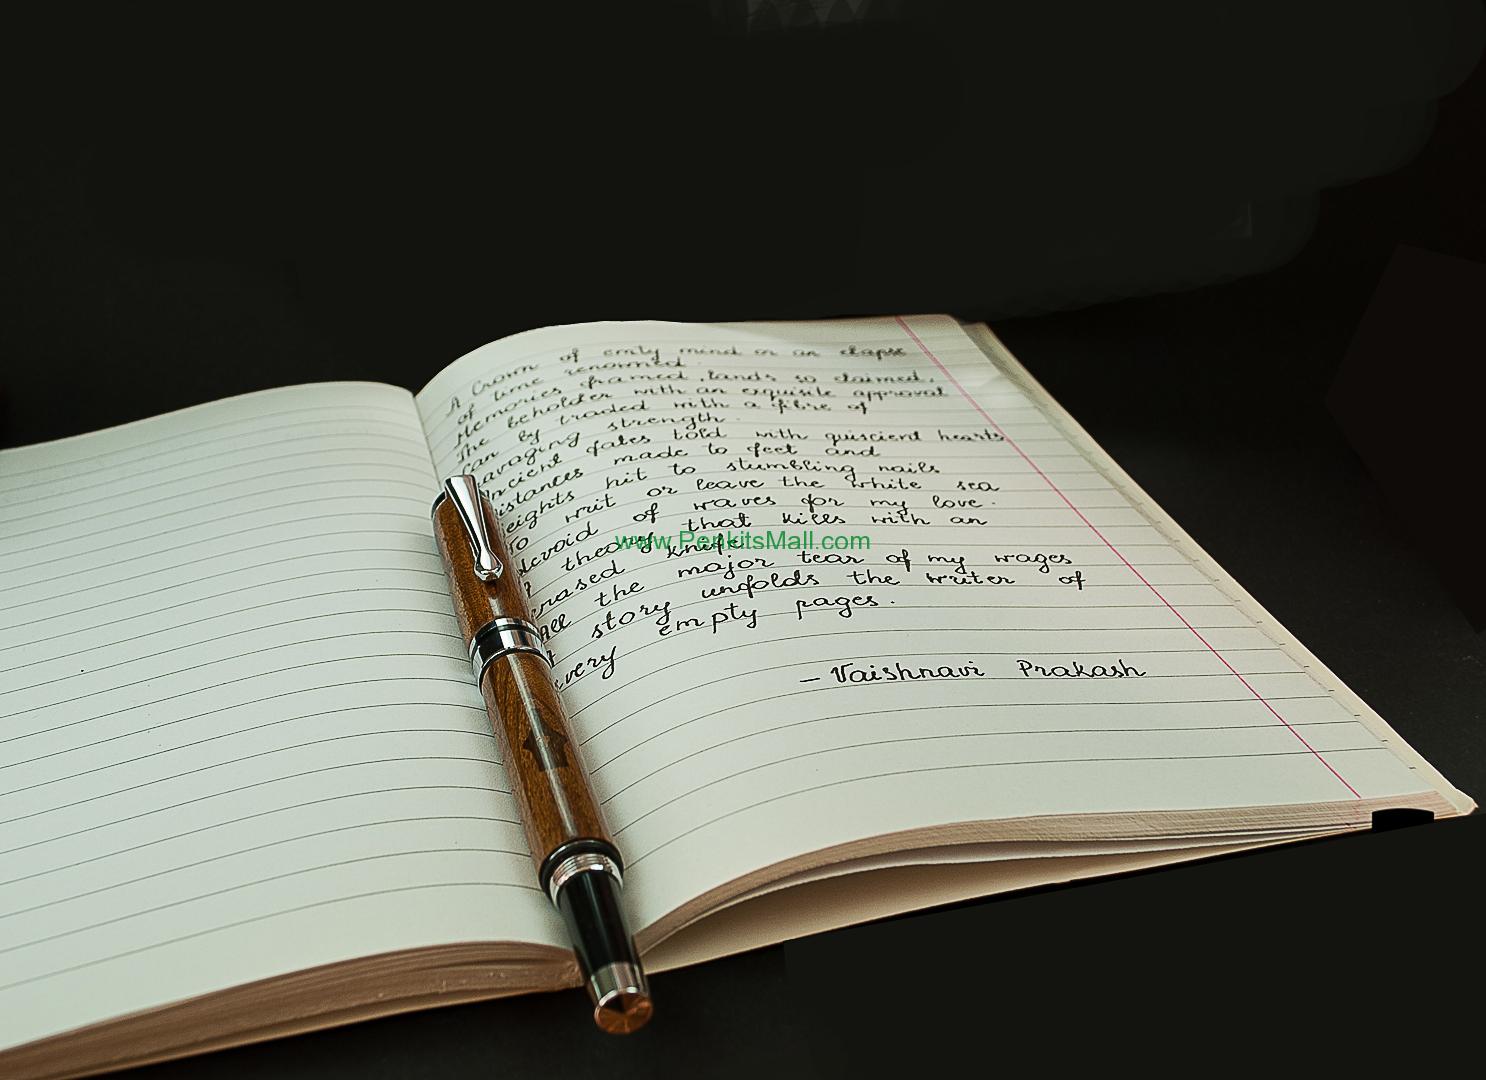 A Crown of emty mind or an elapse
of time renowned.
Memories framed, lands so claimed,
The beholder with an exquisite approval
can by traded with a fibre of
ravaging strength.
Ancient fates told with quiscient hearts
istances made to feet and
eights hit to stumbling nails
To writ or leave the white sea
devoid of waves for my love.
theory that kills with an
erased knife
All the major tear of my wages
story unfolds the writer of
every empty pages.
– Vaishnavi Prakash
www.PenkitsMall.com